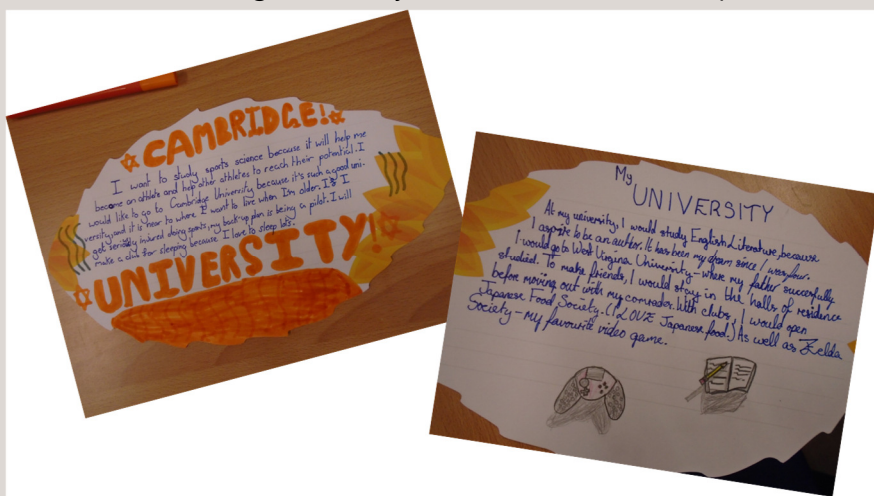 CAMBRIDGE!
I want to study sports science because it will help me
become an athlete and help other athletes to reach their potential. I
would like to go to Cambridge University because it's such a good uni-
versity, and it is near to where I want to live when I'm older. If I
get seriously injured doing sports, my back-up plan is being a pilot. I will
make a club for sleeping because I love to sleep lots.
UNIVERSITY!
My
UNIVERSITY
At my university, I would study English Literature, because
I aspire to be an author. It has been my dream since I was four.
I would go to West Virgina University - where my father succesfully
studied. To make friends, I would stay in the halls of residence
before moving out with my comrades. With clubs, I would open
Japanese Food Society. (I LOVE Japanese food.) As well as Zelda
Society - my favourite video game.